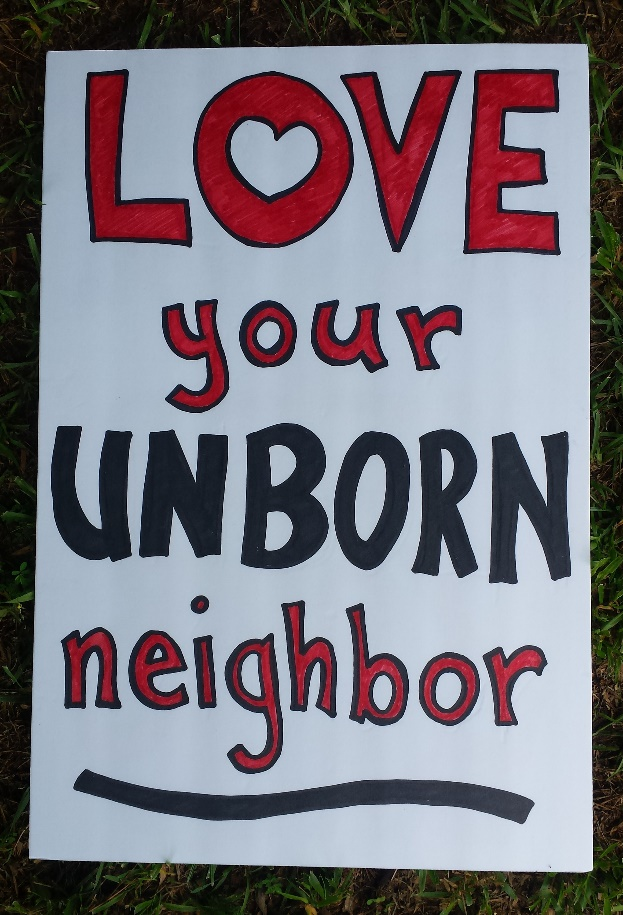 LOVE
your
UNBORN
neighbor